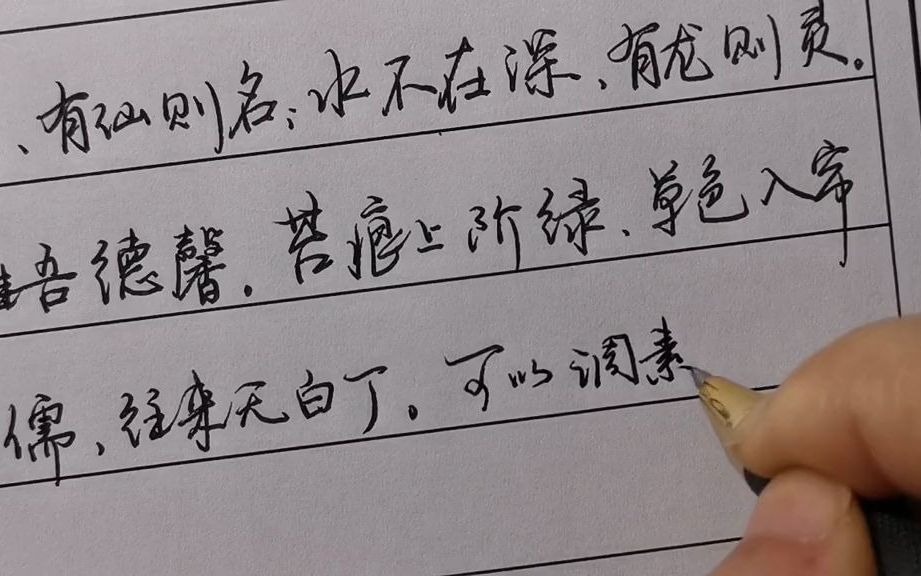 、有仙则名；水不在深、有龙则灵。
吾德馨。苔痕上阶绿、草色入帘
儒、往来无白丁。可以调素